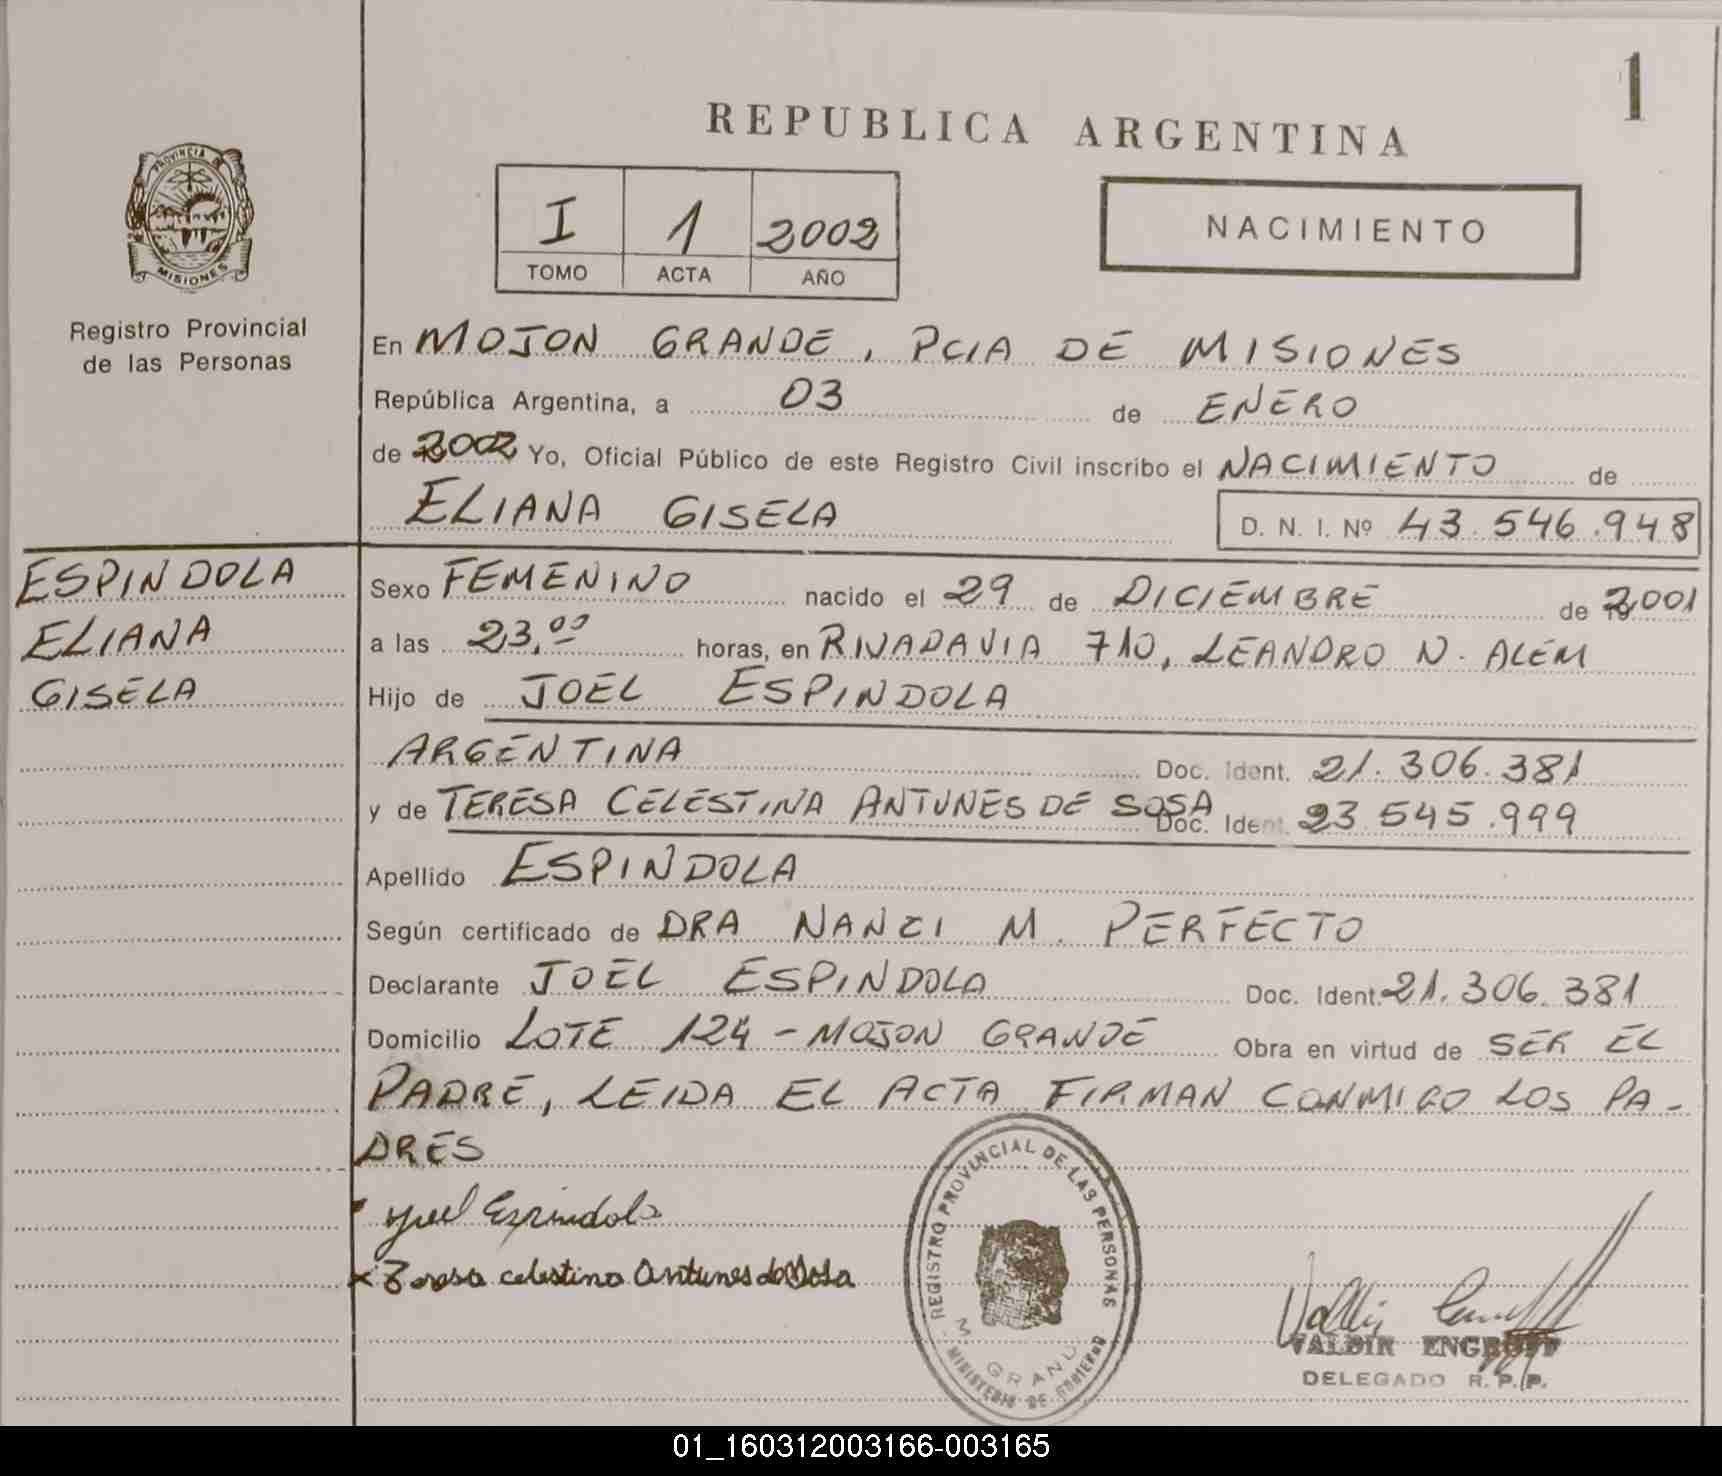 1
REPUBLICA ARGENTINA
PROVINCIA DE
MISIONES
Registro Provincial
de las Personas
I 1 2002
TOMO ACTA AÑO
NACIMIENTO
En MOJON GRANDE, PCIA DE MISIONES
República Argentina, a 03 de ENERO
de 2002 Yo, Oficial Público de este Registro Civil inscribo el NACIMIENTO de
ELIANA GISELA D. N. I. Nº 43.546.948
ESPINDOLA
ELIANA
GISELA
Sexo FEMENINO nacido el 29 de DICIEMBRE de 2001
a las 23,00 horas, en RIVADAVIA 710, LEANDRO N. ALEM
Hijo de JOEL ESPINDOLA
ARGENTINA Doc. Ident. 21.306.381
y de TERESA CELESTINA ANTUNES DE SOSA Doc. Ident. 23.545.999
Apellido ESPINDOLA
Según certificado de DRA NANCI M. PERFECTO
Declarante JOEL ESPINDOLA Doc. Ident. 21.306.381
Domicilio LOTE 124 - MOJON GRANDE Obra en virtud de SER EL
PADRE, LEIDA EL ACTA FIRMAN CONMIGO LOS PA-
DRES
Espindola
x Teresa celestina Antunes de Sosa
REGISTRO PROVINCIAL DE LAS PERSONAS
MINISTERIO DE GOBIERNO
VALDIR ENGROFF
DELEGADO R. P. P.
01_160312003166-003165